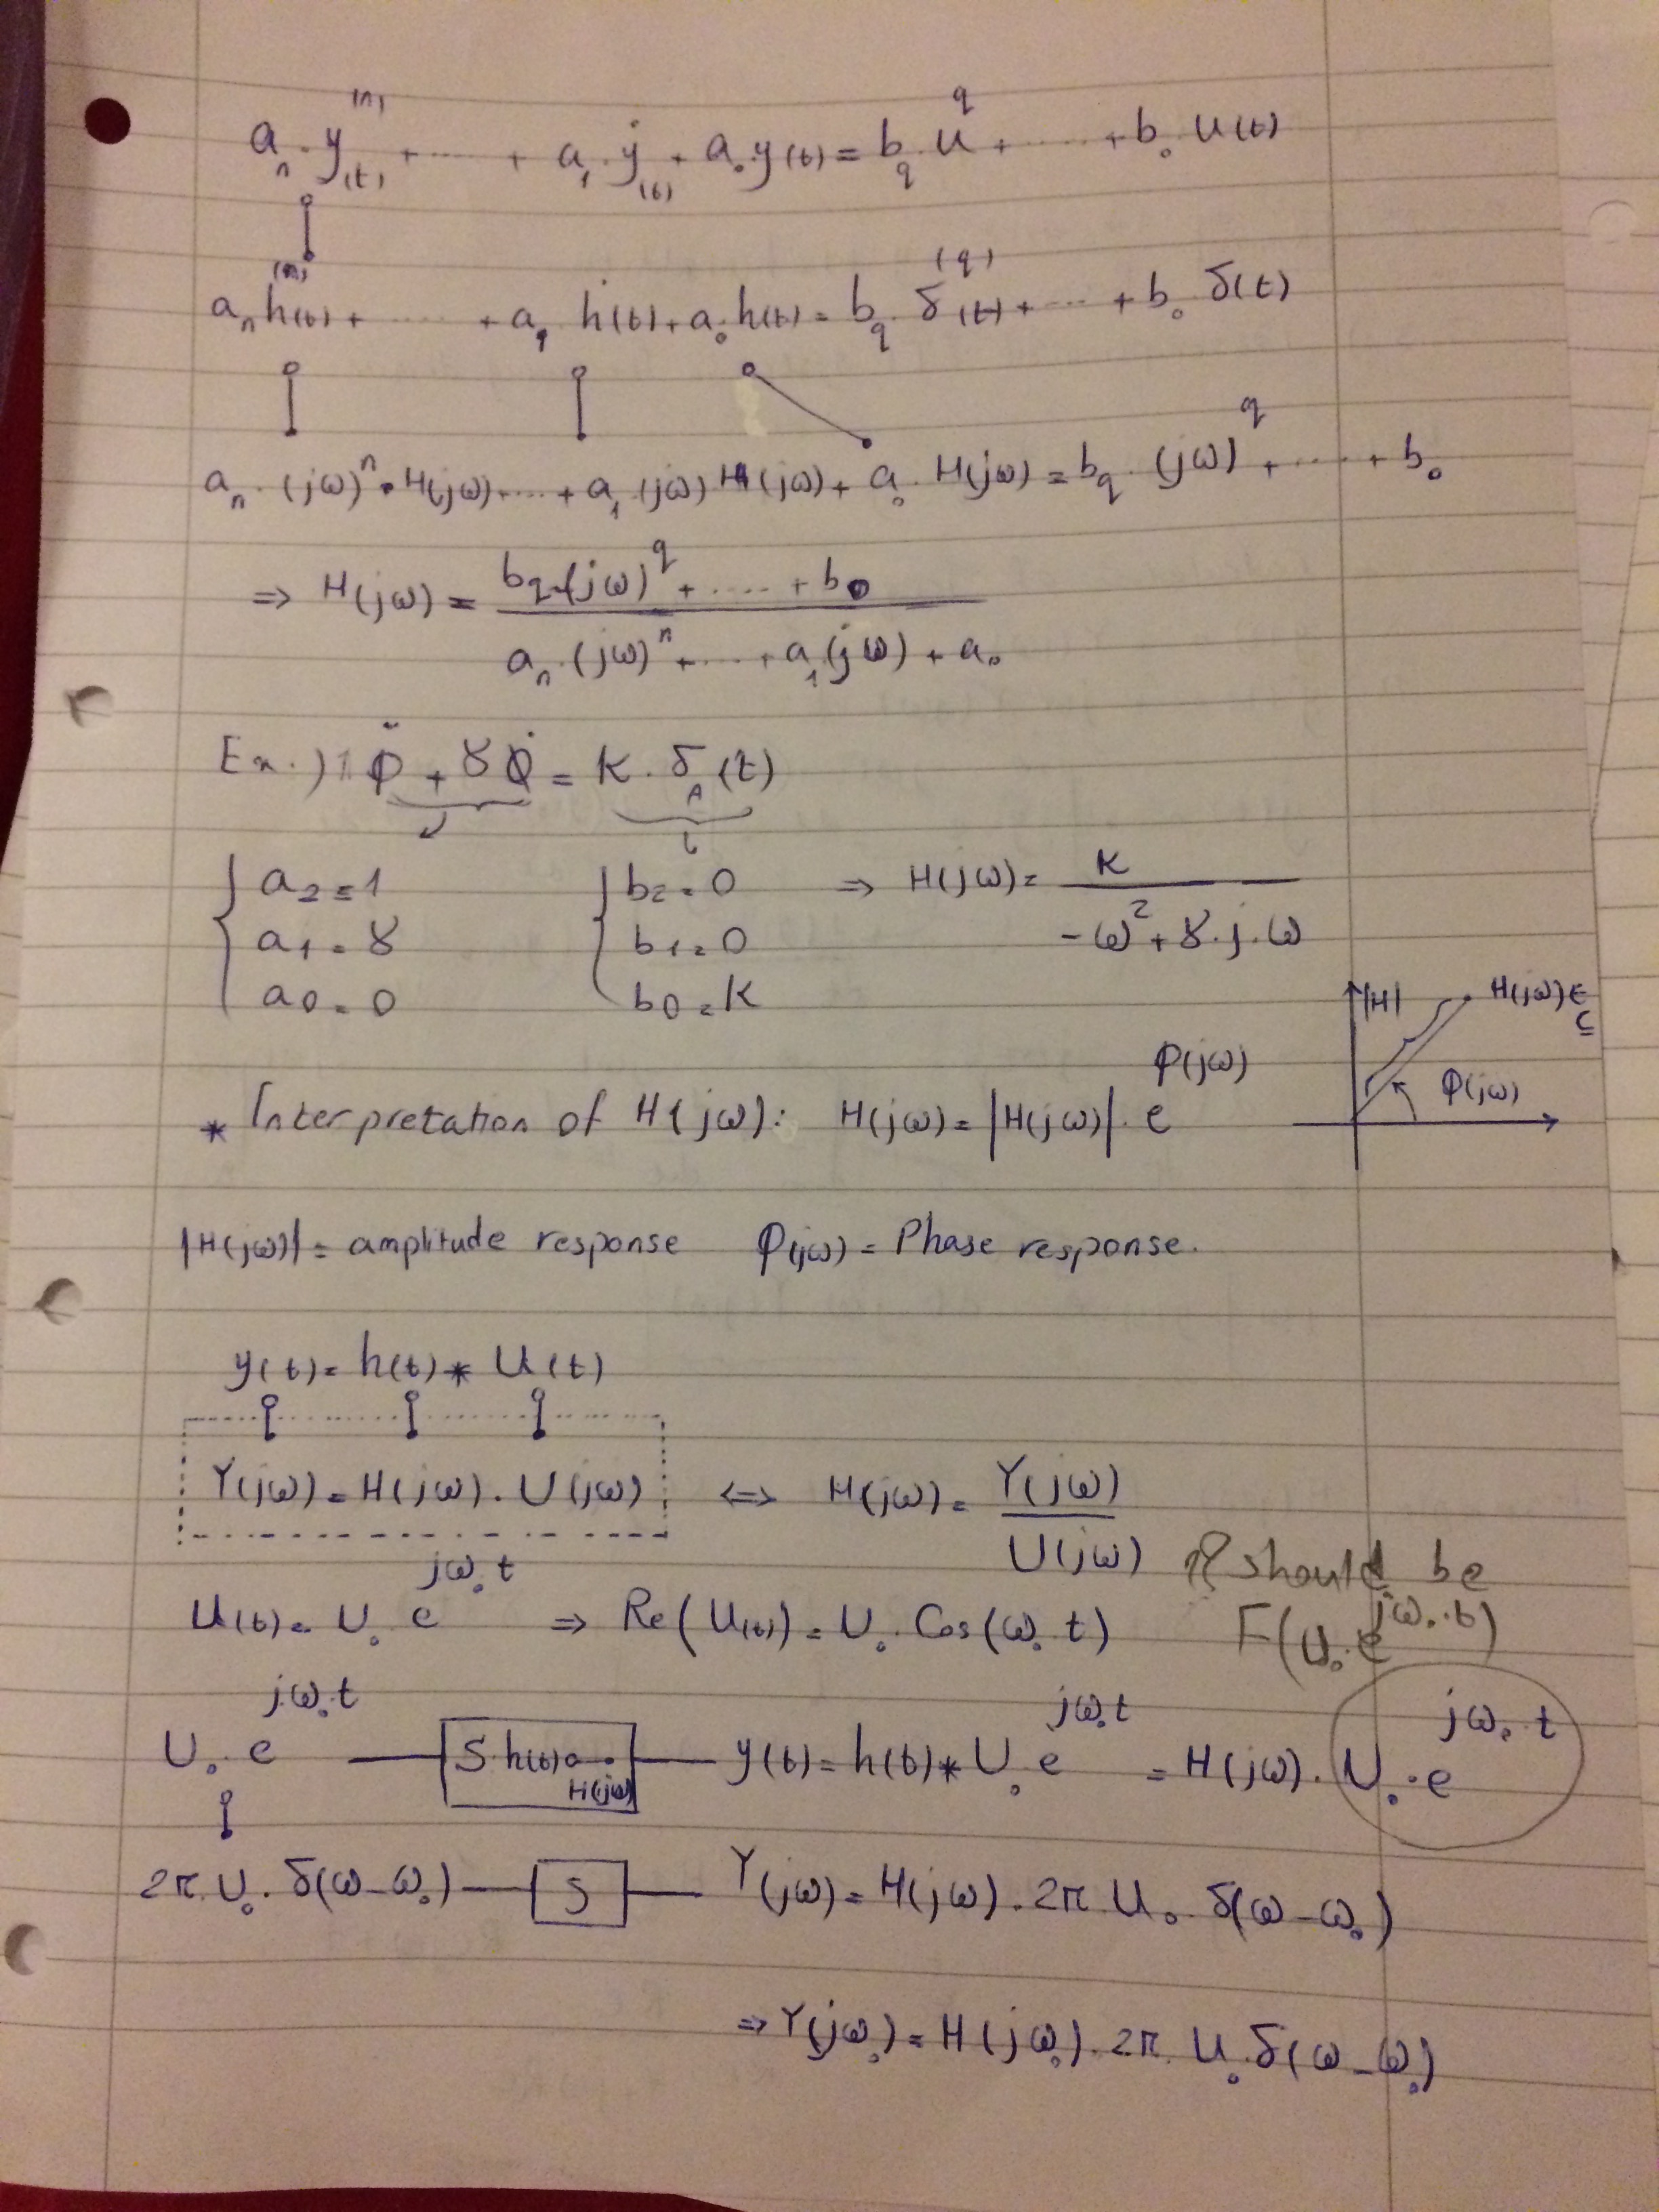 aₙ · y⁽ⁿ⁾(t) + ..... + a₁ · ẏ(t) + a₀ · y(t) = b_q · u^q + ...... + b₀ · u(t)
aₙ h⁽ⁿ⁾(t) + ...... + a₁ ḣ(t) + a₀ h(t) = b_q · δ^(q)(t) + ... + b₀ δ(t)
aₙ · (jω)ⁿ · H(jω) + ... + a₁ (jω) H(jω) + a₀ · H(jω) = b_q · (jω)^q + ..... + b₀
⇒ H(jω) = (b_q · (jω)^q + ..... + b₀) / (aₙ · (jω)ⁿ + .... + a₁ (jω) + a₀)
Ex.) 1 φ̈ + γ φ̇ = K · δ_A (t)
a₂ = 1 b₂ = 0 ⇒ H(jω) = K / (-ω² + γ · j · ω)
a₁ = γ b₁ = 0
a₀ = 0 b₀ = K
|H| H(jω) ∈ C
φ(jω)
* Interpretation of H(jω): H(jω) = |H(jω)| · e^φ(jω)
|H(jω)| = amplitude response φ(jω) = Phase response.
y(t) = h(t) * U(t)
Y(jω) = H(jω) . U(jω) ⇔ H(jω) = Y(jω) / U(jω)
should be
U(t) = U₀ e^jω₀t ⇒ Re(U(t)) = U₀ . Cos(ω₀ t) F(U₀ · e^jω₀·t)
U₀ · e^jω₀t S h(t) H(jω) y(t) = h(t) * U₀ e^jω₀t = H(jω) · U₀ · e^jω₀t
2π U₀ · δ(ω - ω₀) S Y(jω) = H(jω) . 2π U₀ · δ(ω - ω₀)
⇒ Y(jω₀) = H(jω₀) . 2π U₀ · δ(ω - ω₀)